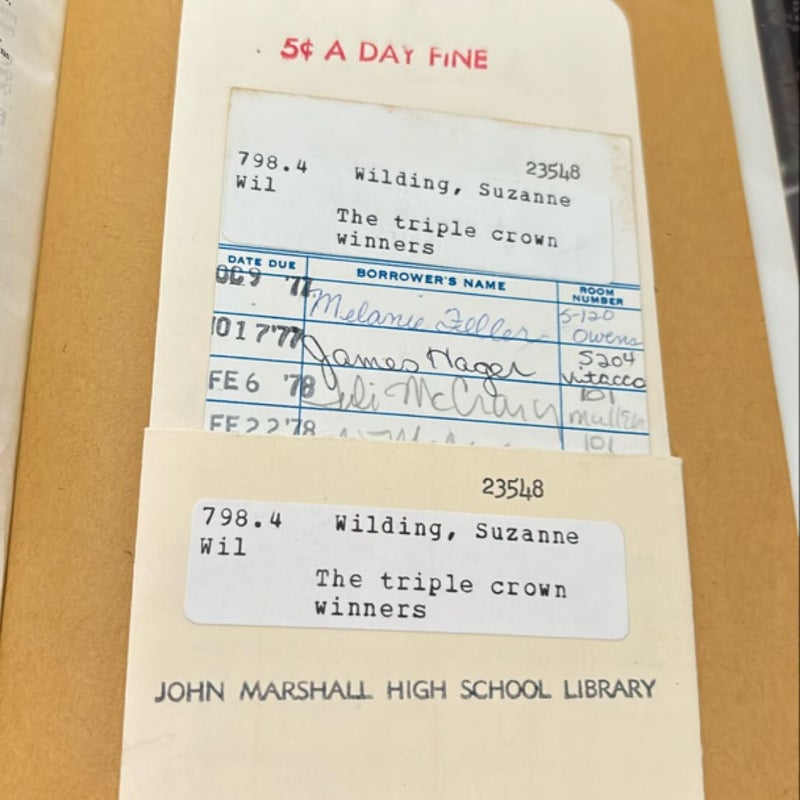 5¢ A DAY FINE
23548
798.4 Wilding, Suzanne
Wil
The triple crown
winners
DATE DUE BORROWER'S NAME ROOM NUMBER
OC 9 '77 Melanie Zeller S-120
Owens
10 17 '77 James Hager S204
Vitacco
FE 6 '78 Juli McCrary 101
Mullen
FE 22 '78 101
23548
798.4 Wilding, Suzanne
Wil
The triple crown
winners
JOHN MARSHALL HIGH SCHOOL LIBRARY